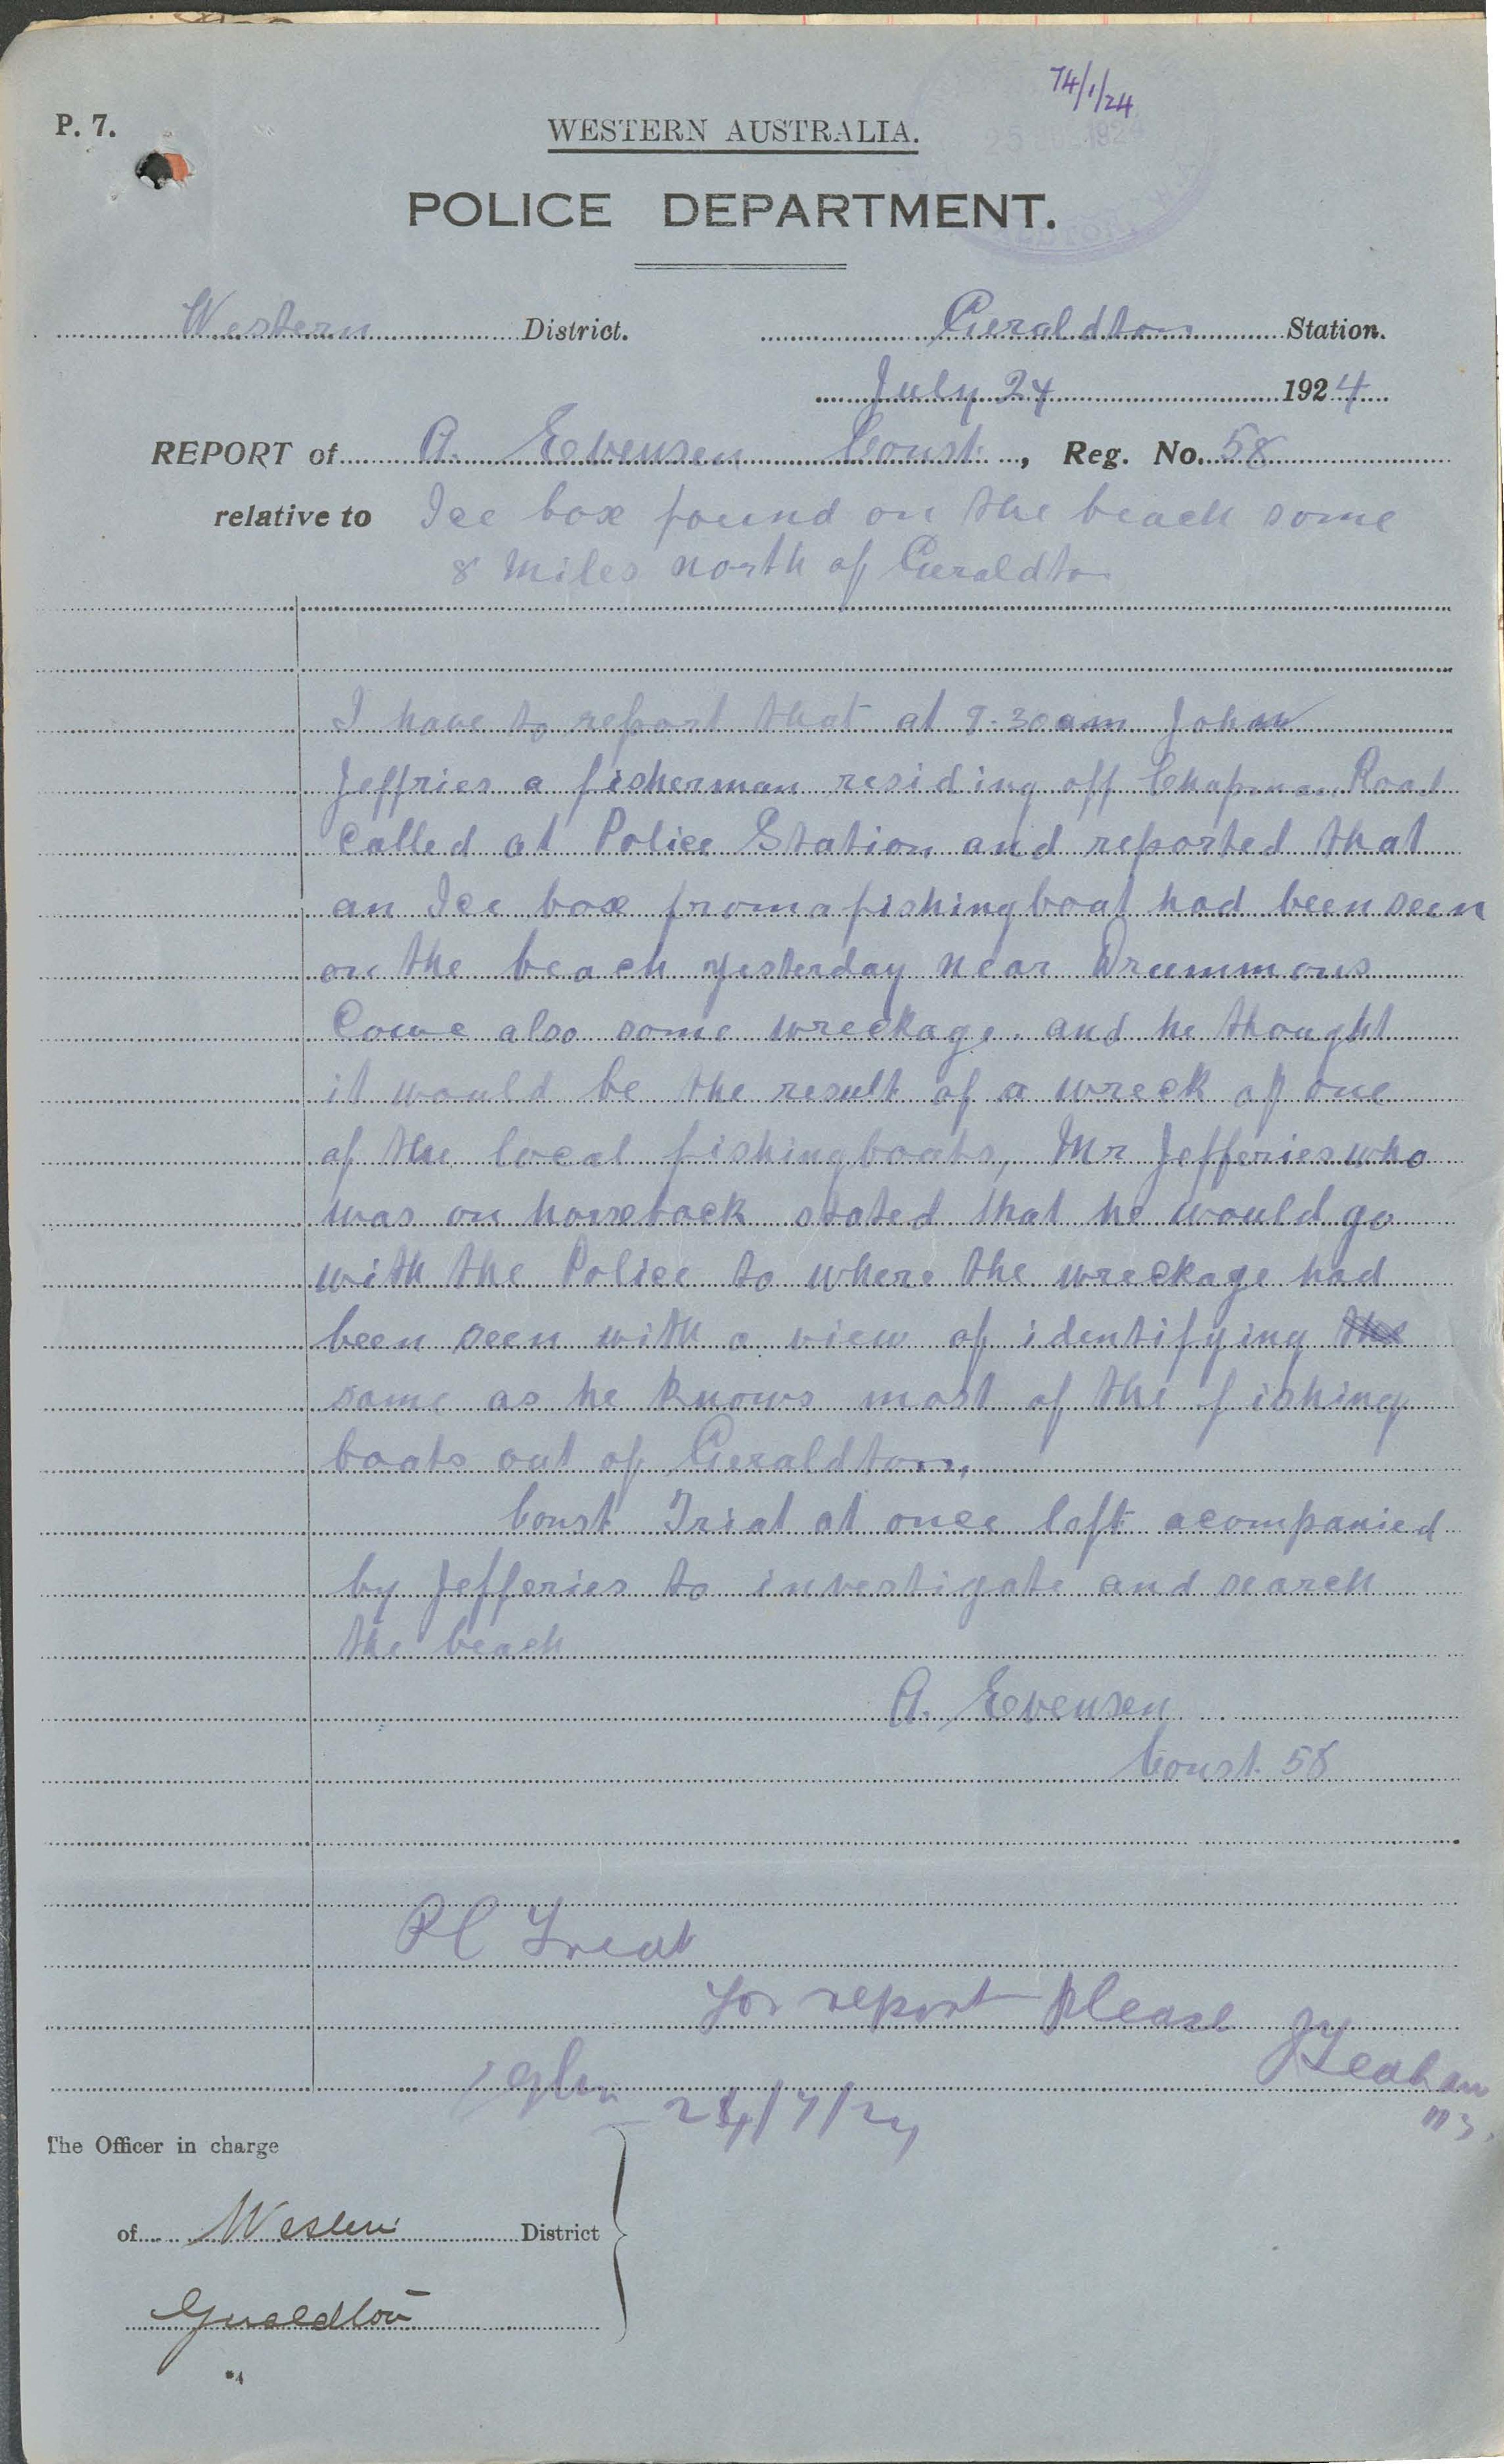 74/1/24
P. 7.
WESTERN AUSTRALIA.
POLICE DEPARTMENT.
Western District. Geraldton Station.
July 24 1924
REPORT of A. Evensen Const., Reg. No. 58
relative to Ice box found on the beach some
8 miles north of Geraldton
I have to report that at 9.30 am John
Jeffries a fisherman residing off Chapman Road
called at Police Station and reported that
an Ice box from a fishing boat had been seen
on the beach yesterday near Drummons
Cove also some wreckage. and he thought
it would be the result of a wreck of one
of the local fishing boats, Mr Jefferies who
was on horseback stated that he would go
with the Police to where the wreckage had
been seen with a view of identifying the
same as he knows most of the fishing
boats out of Geraldton.
Const Triat at once left acompanied
by Jefferies to investigate and search
the beach
A. Evensen
Const. 58
PC Treat
for report please
24/7/24
The Officer in charge
of Western District
Geraldton